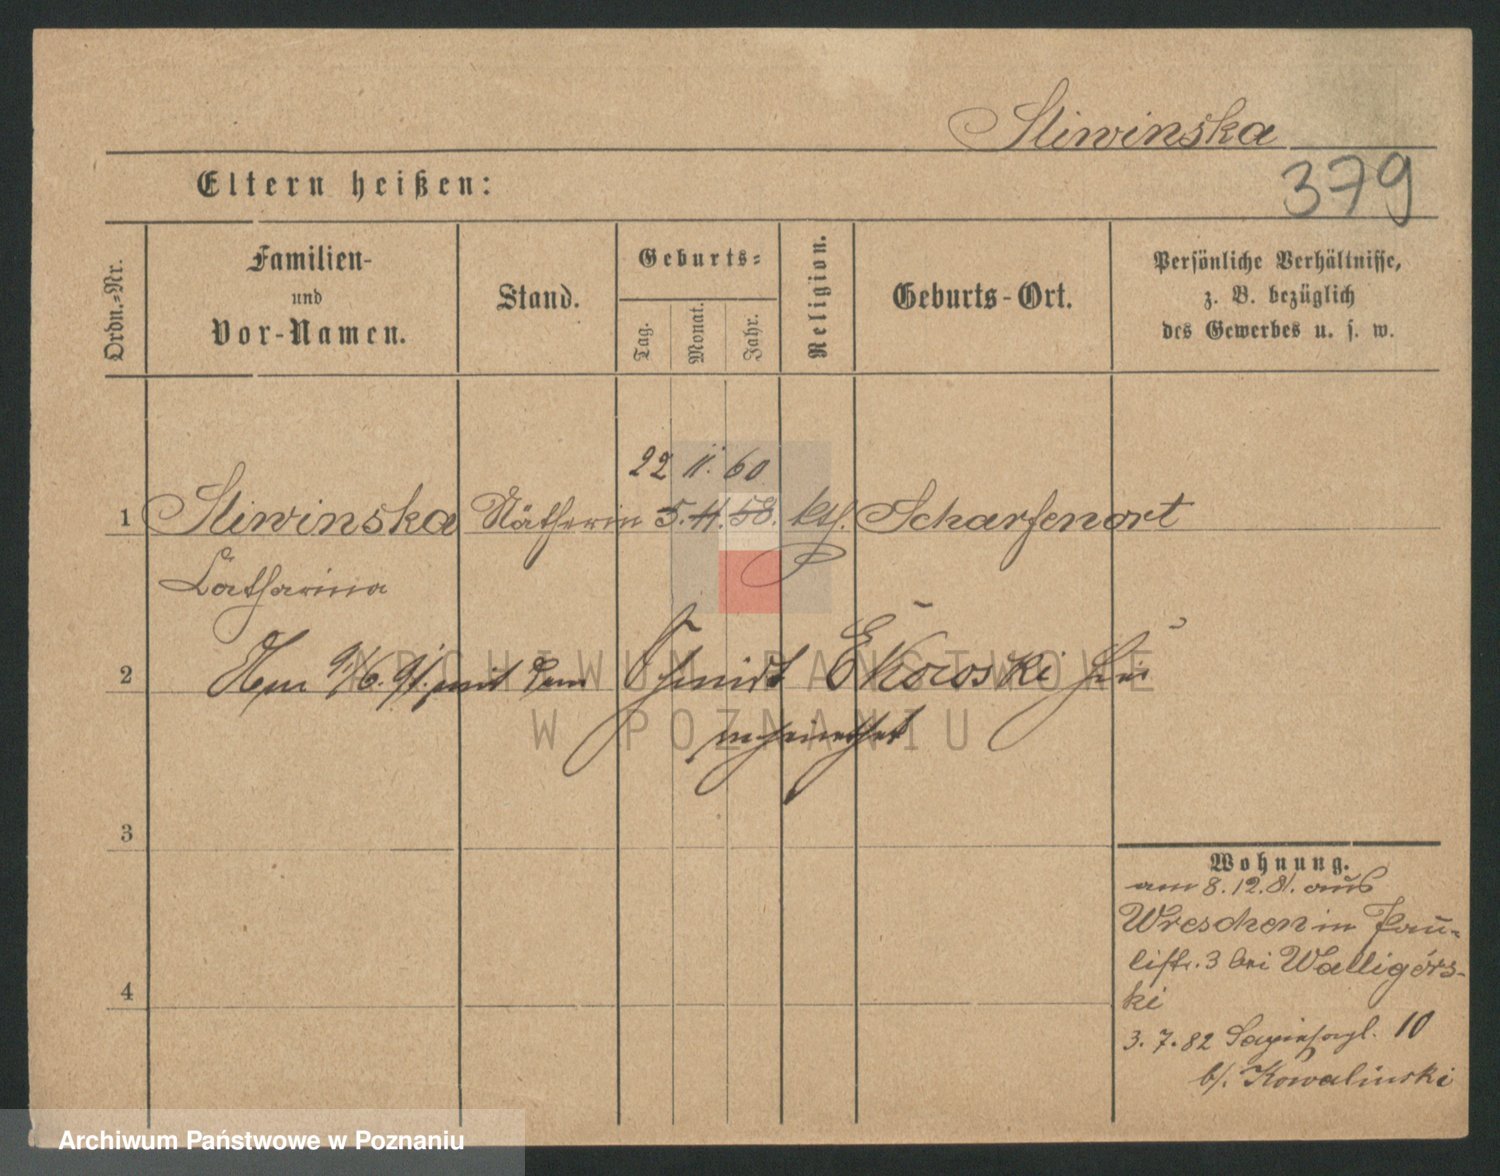 Sliwinska
379
Eltern heißen:
Ordn.-Nr.
Familien-
und
Vor-Namen.
Stand.
Geburts-
Tag.
Monat.
Jahr.
Religion.
Geburts-Ort.
Persönliche Verhältnisse,
z. B. bezüglich
des Gewerbes u. s. w.
22 11. 60
1 Sliwinska Nätherin 5. 11. 58. kth. Scharfenort
Catharina
2 Am 9/6. 91. mit dem Schmidt hier
verheirathet
3
Wohnung.
am 8. 12. 81. aus
Wreschen in Pau-
listr. 3 bei Walligórs-
ki
4
3. 7. 82 Sapiehapl. 10
b/. Kowalinski
ARCHIWUM PAŃSTWOWE
W POZNANIU
Archiwum Państwowe w Poznaniu